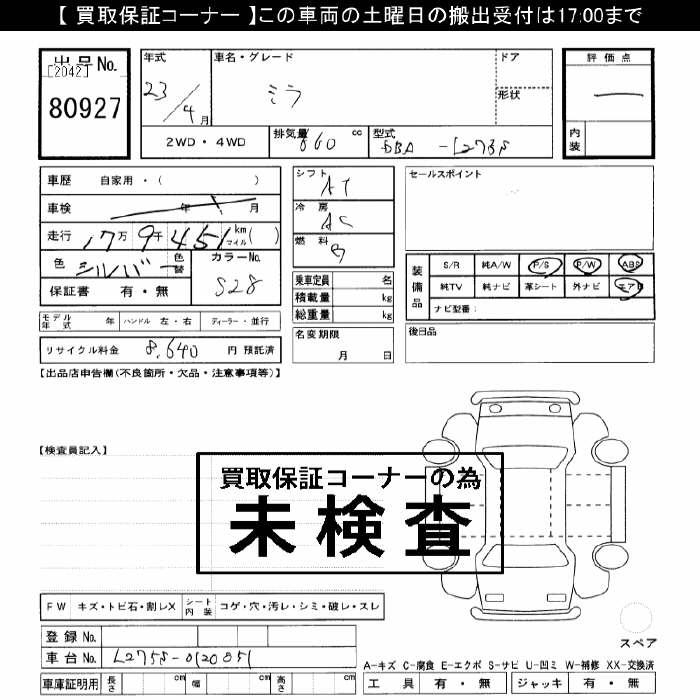 【 買取保証コーナー 】この車両の土曜日の搬出受付は17:00まで
出品No.
[2042]
80927
年式
23/4月
車名・グレード
ミラ
ドア
形状
評価点
内装
2WD・4WD
排気量 660 cc
型式 DBA-L275S
車歴 自家用・( )
車検 年 月
走行 17万 9千 451 km マイル ( )
色 シルバー 色替
カラーNo. S28
保証書 有・無
シフト AT
冷房 AC
燃料
乗車定員 名
積載量 kg
総重量 kg
セールスポイント
装備品
S/R 純A/W P/S P/W ABS
純TV 純ナビ 革シート 外ナビ エアB
ナビ型番:
モデル年式 年 ハンドル 左・右 ディーラー・並行
名変期限 月 日
後日品
リサイクル料金 8,640 円 預託済
【出品店申告欄(不良箇所・欠品・注意事項等)】
【検査員記入】
買取保証コーナーの為
未検査
FW キズ・トビ石・割レX シート内装 コゲ・穴・汚レ・シミ・破レ・スレ
登録No.
車台No. L275S-0120851
車庫証明用 長さ cm 幅 cm 高さ cm
スペア
A-キズ C-腐食 E-エクボ S-サビ U-凹ミ W-補修 XX-交換済
工具 有・無 ジャッキ 有・無